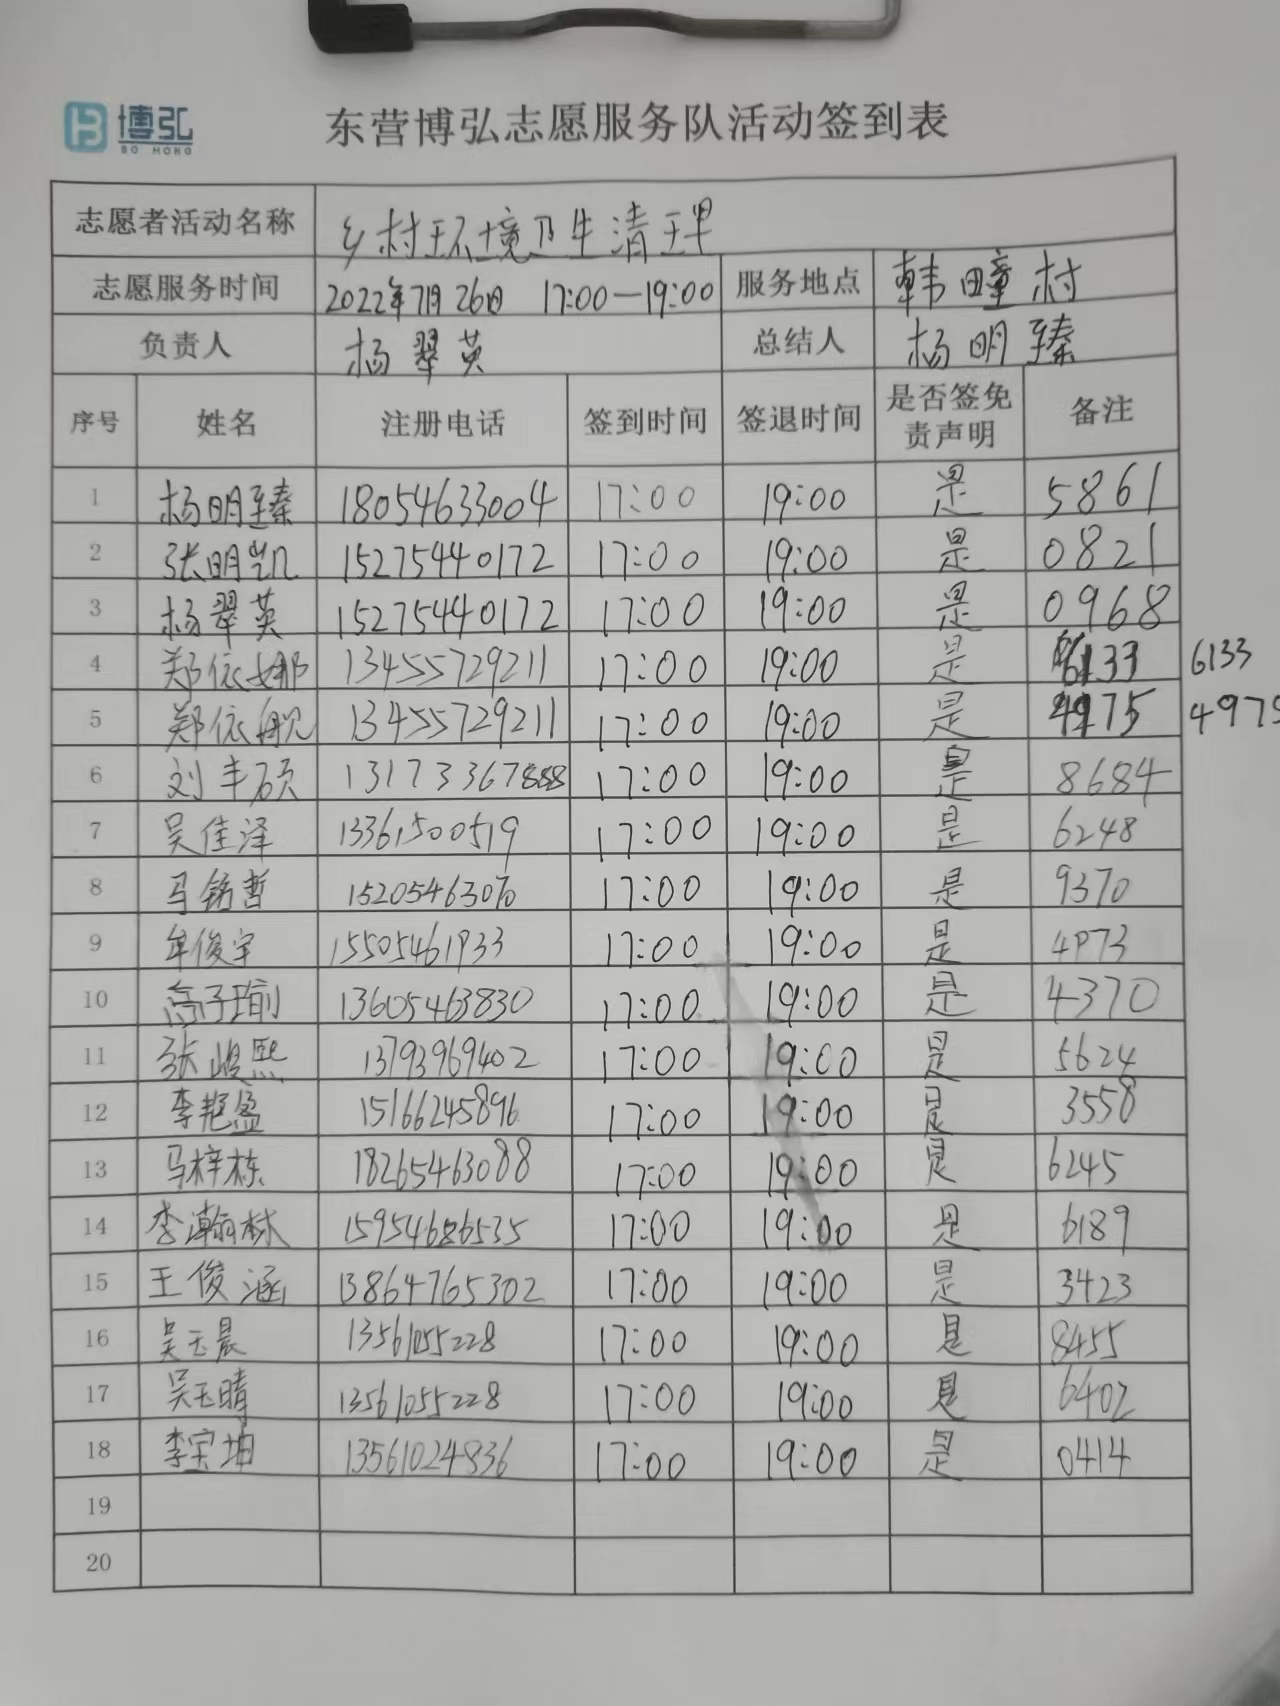 博弘
BO HONG
东营博弘志愿服务队活动签到表
志愿者活动名称 乡村环境卫生清理
志愿服务时间 2022年7月26日 17:00—19:00 服务地点 韩疃村
负责人 杨翠英 总结人 杨明臻
序号 姓名 注册电话 签到时间 签退时间 是否签免责声明 备注
1 杨明臻 18054633004 17:00 19:00 是 5861
2 张明凯 15275440172 17:00 19:00 是 0821
3 杨翠英 15275440172 17:00 19:00 是 0968
4 郑依娜 13455729211 17:00 19:00 是 6133 6133
5 郑依舰 13455729211 17:00 19:00 是 4975 4975
6 刘丰硕 13173367888 17:00 19:00 是 8684
7 吴佳泽 13361500519 17:00 19:00 是 6248
8 马铭哲 15205463070 17:00 19:00 是 9370
9 牟俊宇 15505461933 17:00 19:00 是 4973
10 高子瑜 13605463830 17:00 19:00 是 4370
11 张峻熙 13793969402 17:00 19:00 是 5624
12 李艳盈 15166245896 17:00 19:00 是 3558
13 马梓栋 18265463088 17:00 19:00 是 6245
14 李瀚林 15954686535 17:00 19:00 是 6189
15 王俊涵 13864765302 17:00 19:00 是 3423
16 吴玉晨 13561055228 17:00 19:00 是 8455
17 吴玉晴 13561055228 17:00 19:00 是 6402
18 李宝坤 13561024836 17:00 19:00 是 0414
19
20